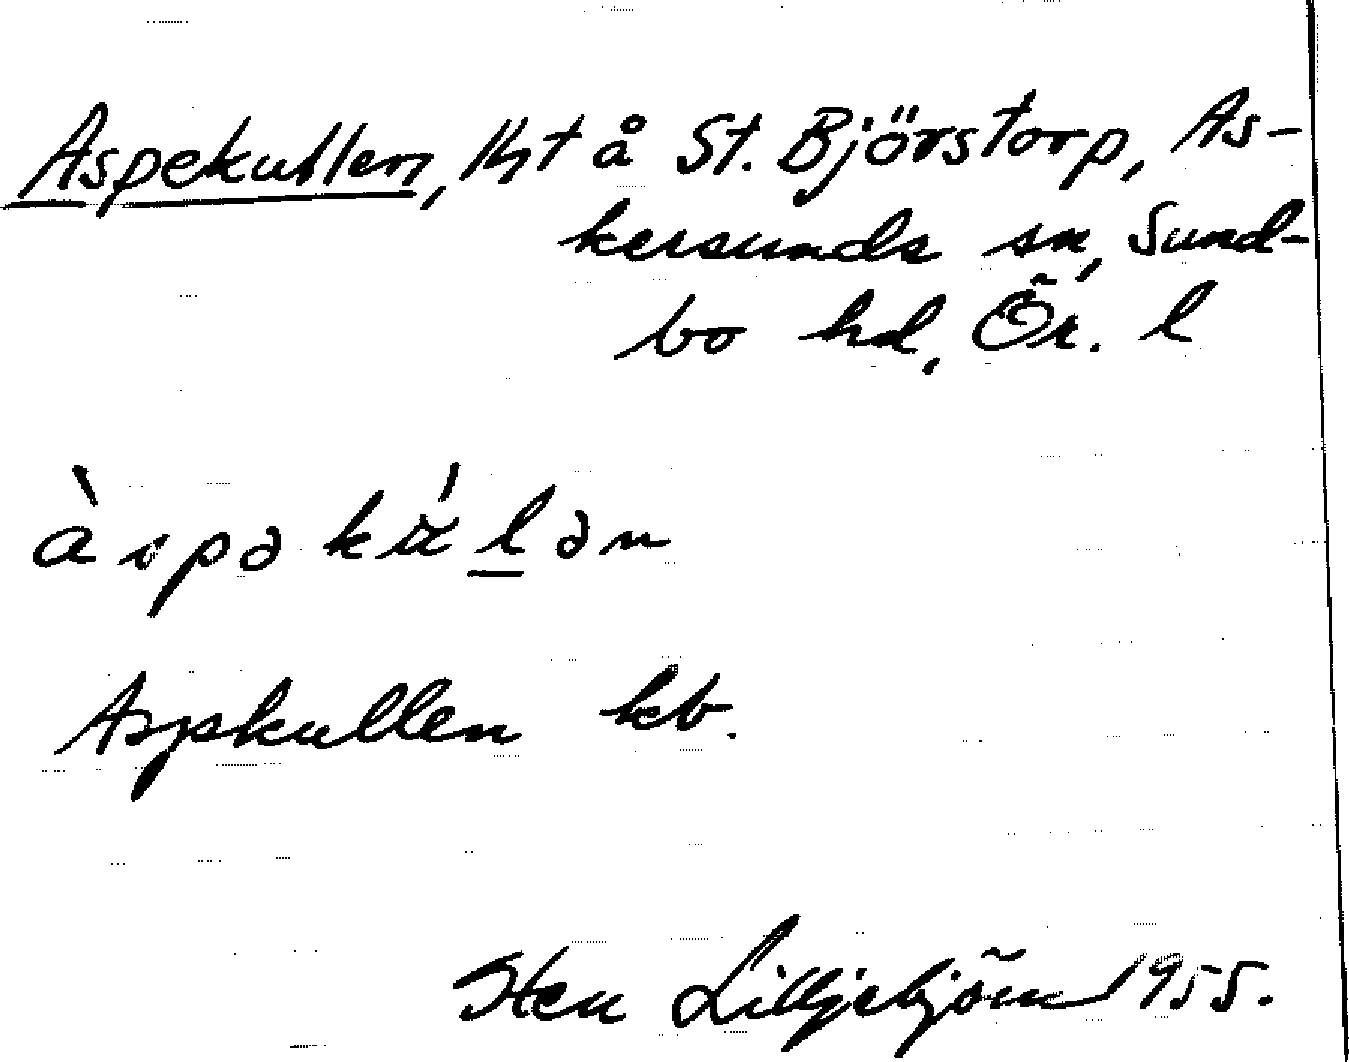 Aspekullen, lht å St. Björstorp, As-
kersunds sn, Sund-
bo hd, Ör. l
àspəkúlən
Aspkullen kb.
Sten Lilljebjörn 1955.